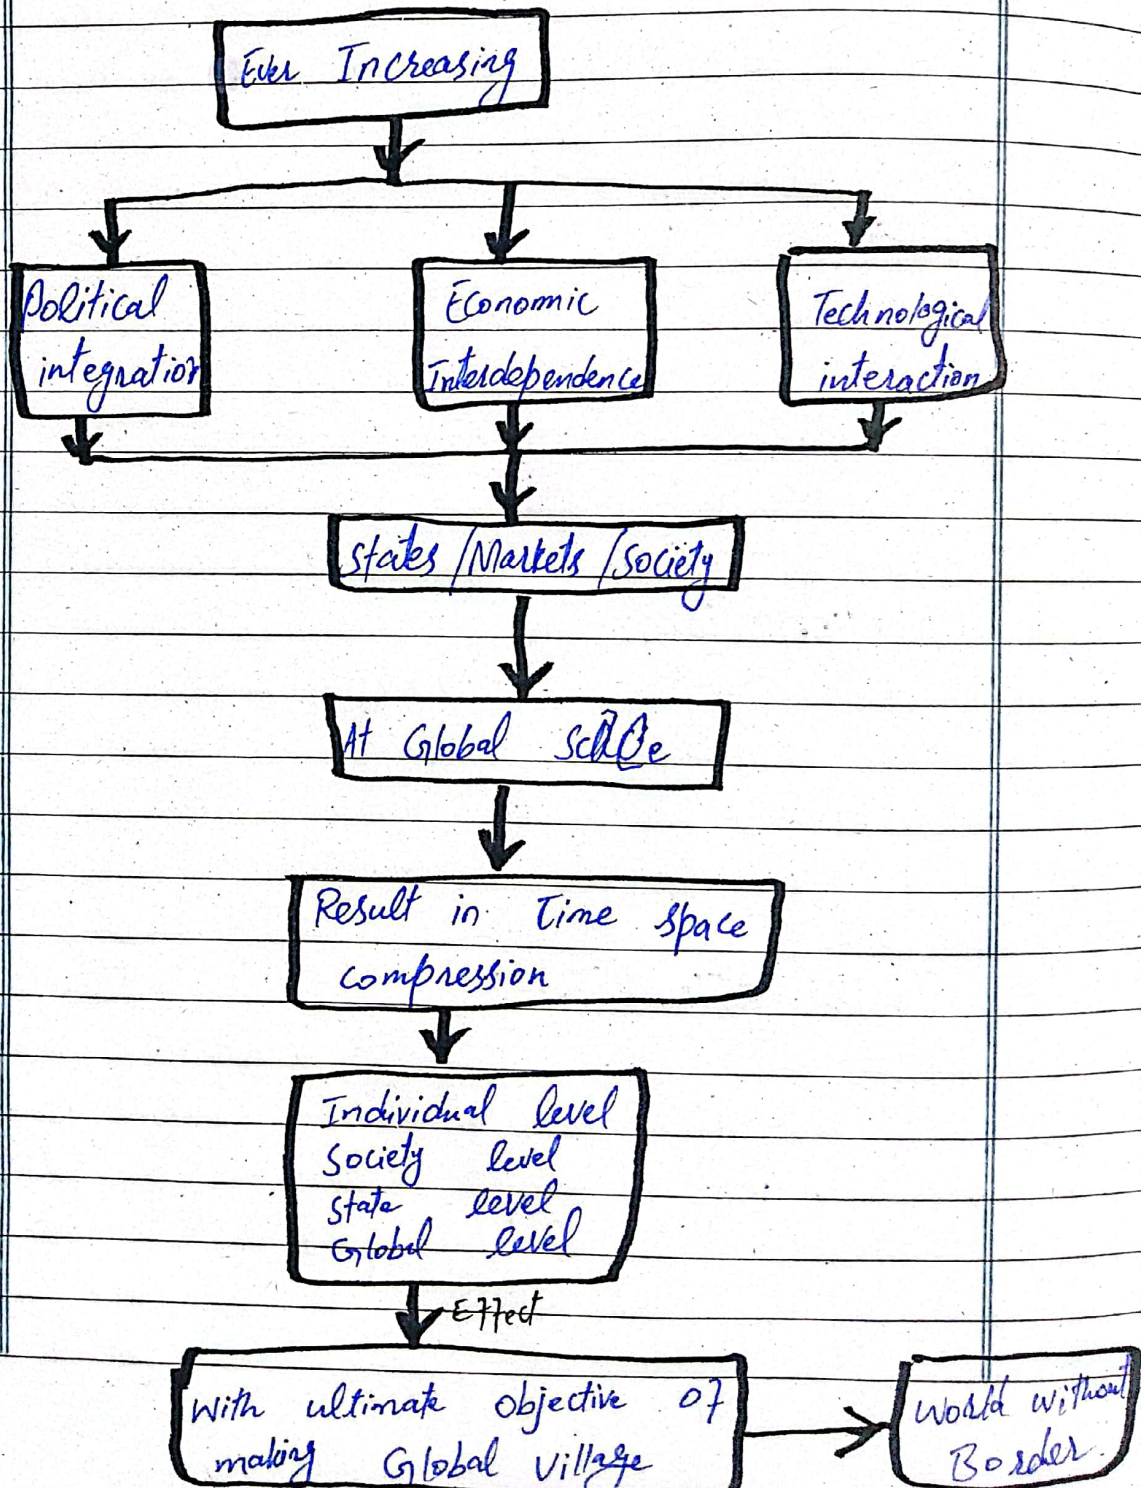 Ever Increasing
Political
integration
Economic
Interdependence
Technological
interaction
States/Markets/Society
At Global Scale
Result in Time space
compression
Individual level
Society level
State level
Global level
Effect
With ultimate objective of
making Global village
World without
Border.